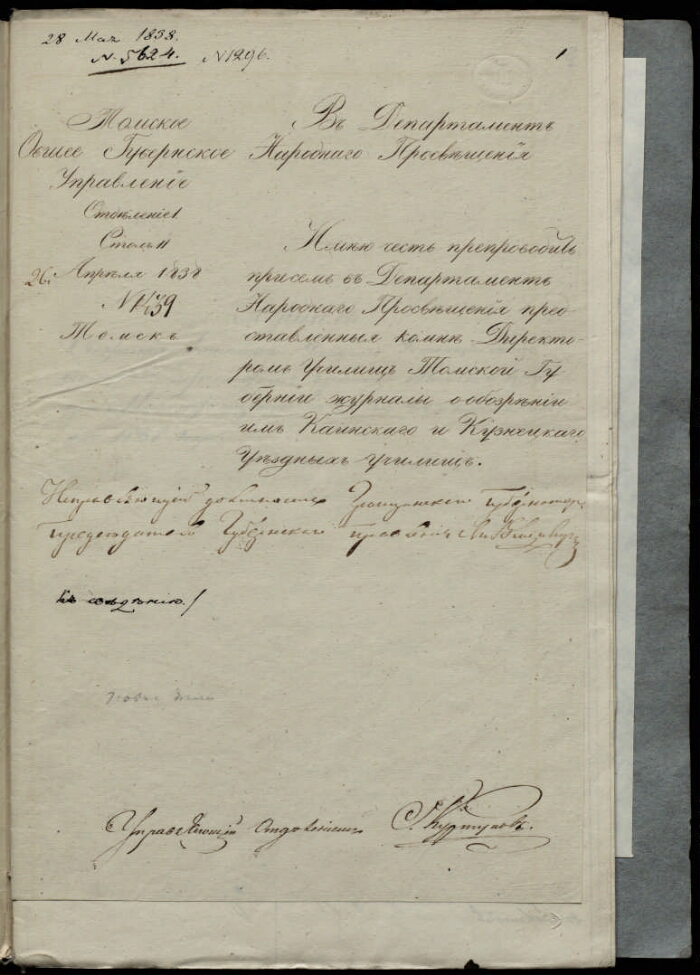 28 Мая 1838.
N. 5624. N 1296.
1
Томское
Общее Губернское
Управленіе
Отдѣленіе I
Столъ II
26. Апрѣля 1838
N 1439
Томскъ
Въ Департаментъ
Народнаго Просвѣщенія
Имѣю честь препроводить
при семъ въ Департаментъ
Народнаго Просвѣщенія пред-
ставленныя ко мнѣ Директо-
ромъ Училищъ Томской Гу-
берніи журналы о обозрѣніи
имъ Каинскаго и Кузнецкаго
Уѣздныхъ училищъ.
Исправляющій должность Гражданскаго Губернатора
Предсѣдатель Губернскаго правленія
Къ свѣдѣнію.
Управляющій Отдѣленіемъ